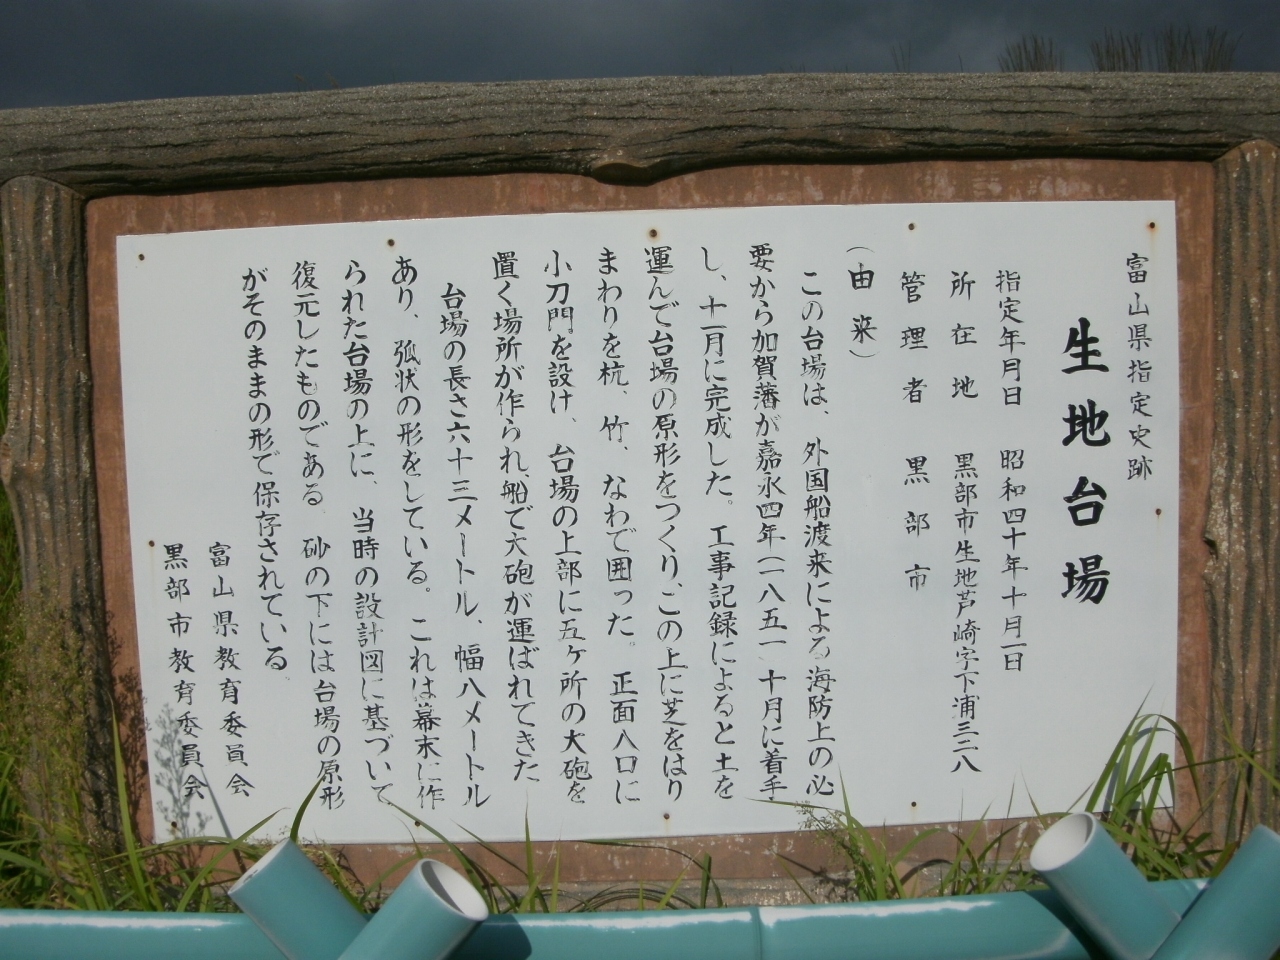 富山県指定史跡
生地台場
指定年月日 昭和四十年十月一日
所在地 黒部市生地芦崎字下浦三二八
管理者 黒部市
（由来）
この台場は、外国船渡来による海防上の必
要から加賀藩が嘉永四年（一八五一 十月に着手
し、十一月に完成した。工事記録によると土を
運んで台場の原形をつくり、この上に芝をはり
まわりを杭、竹、なわで囲った。正面入口に
小刀門を設け、台場の上部に五ヶ所の大砲を
置く場所が作られ、船で大砲が運ばれてきた
台場の長さ六十三メートル、幅八メートル
あり、弧状の形をしている。これは幕末に作
られた台場の上に、当時の設計図に基づいて
復元したものである 砂の下には台場の原形
がそのままの形で保存されている
富山県教育委員会
黒部市教育委員会